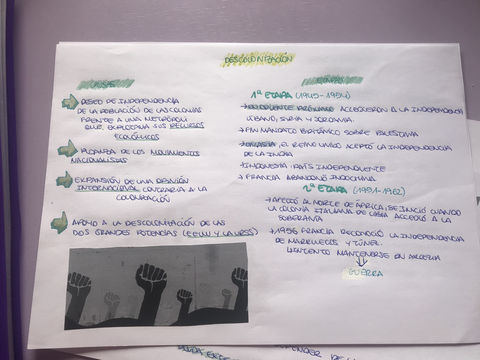 DESCOLONIZACIÓN
CAUSAS
DESEO DE INDEPENDENCIA
DE LA POBLACIÓN DE LAS COLONIAS
FRENTE A UNA METRÓPOLI
QUE EXPLOTABA SUS RECURSOS
ECONÓMICOS
DE LOS MOVIMIENTOS
NACIONALISTAS
EXPANSIÓN DE UNA OPINIÓN
INTERNACIONAL CONTRARIA A LA
COLONIZACIÓN
APOYO A LA DESCOLONIZACIÓN DE LAS
DOS GRANDES POTENCIAS (EEUU Y LA URSS)
1ª ETAPA (1945-1954)
→ EN ORIENTE PRÓXIMO ACCEDIERON A LA INDEPENDENCIA
LÍBANO, SIRIA Y JORDANIA.
→ FIN MANDATO BRITÁNICO SOBRE PALESTINA
→ EL REINO UNIDO ACEPTÓ LA INDEPENDENCIA
DE LA INDIA
→ INDONESIA: PAÍS INDEPENDIENTE
→ FRANCIA ABANDONÓ INDOCHINA
2ª ETAPA (1951-1962)
→ AFECTÓ AL NORTE DE ÁFRICA, SE INICIÓ CUANDO
LA COLONIA ITALIANA DE LIBIA ACCEDIÓ A LA
SOBERANÍA
→ 1956 FRANCIA RECONOCIÓ LA INDEPENDENCIA
DE MARRUECOS Y TÚNEZ.
INTENTÓ MANTENERSE EN ARGELIA
GUERRA